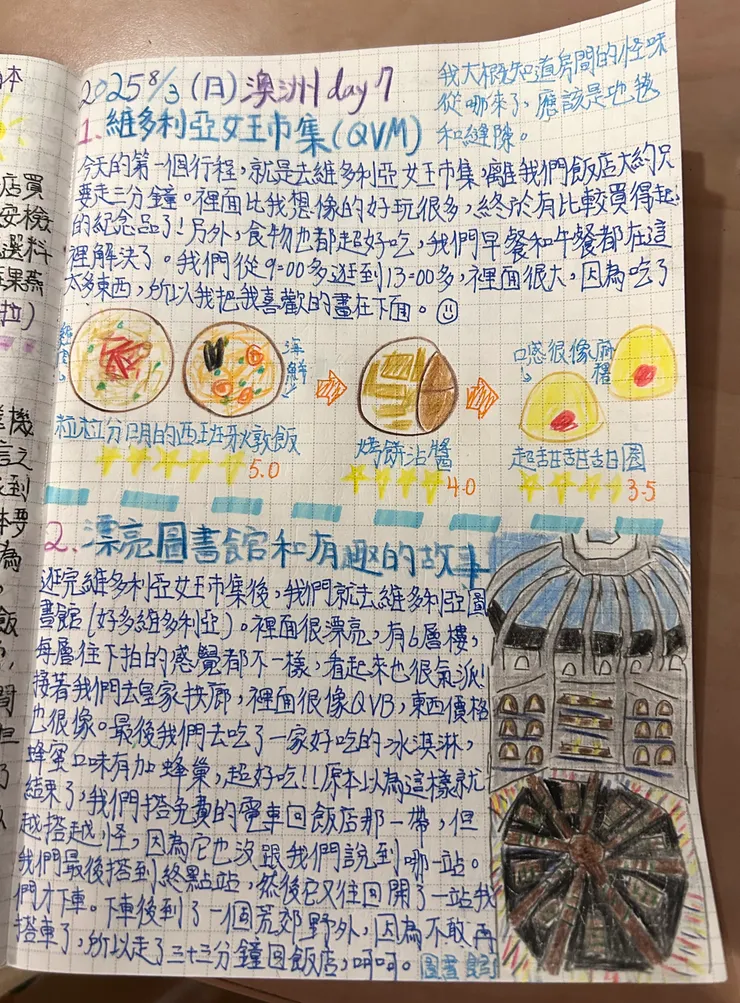 2025 8/3 (日) 澳洲 day 7
我大概知道房間的怪味
從哪來了，應該是地毯
和縫隙。
1. 維多利亞女王市集(QVM)
今天的第一個行程，就是去維多利亞女王市集，離我們飯店大約只
要走二分鐘。裡面比我想像的好玩很多，終於有比較買得起
的紀念品了！另外，食物也都超好吃，我們早餐和午餐都在這
裡解決了。我們從9:00多逛到13:00多，裡面很大，因為吃了
太多東西，所以我把我喜歡的畫在下面。
海鮮
口感很像麻糬
粒粒分明的西班牙燉飯
5.0
烤餅沾醬
4.0
超甜甜甜圈
3.5
2. 漂亮圖書館和有趣的故事
逛完維多利亞女王市集後，我們就去維多利亞圖
書館(好多維多利亞)。裡面很漂亮，有6層樓，
每層往下拍的感覺都不一樣，看起來也很氣派！
接著我們去皇家拱廊，裡面很像QVB，東西價格
也很像。最後我們去吃了一家好吃的冰淇淋，
蜂蜜口味有加蜂巢，超好吃!!原本以為這樣就
結束了，我們搭免費的電車回飯店那一帶，但
越搭越怪，因為它也沒跟我們說到哪一站。
我們最後搭到終點站，然後它又往回開了一站我
們才下車。下車後到了一個荒郊野外，因為不敢再
搭車了，所以走了三十三分鐘回飯店，呵呵。
圖書館
本
店買
安檢
選料
拉)
機
到
為
飯
間
但
了